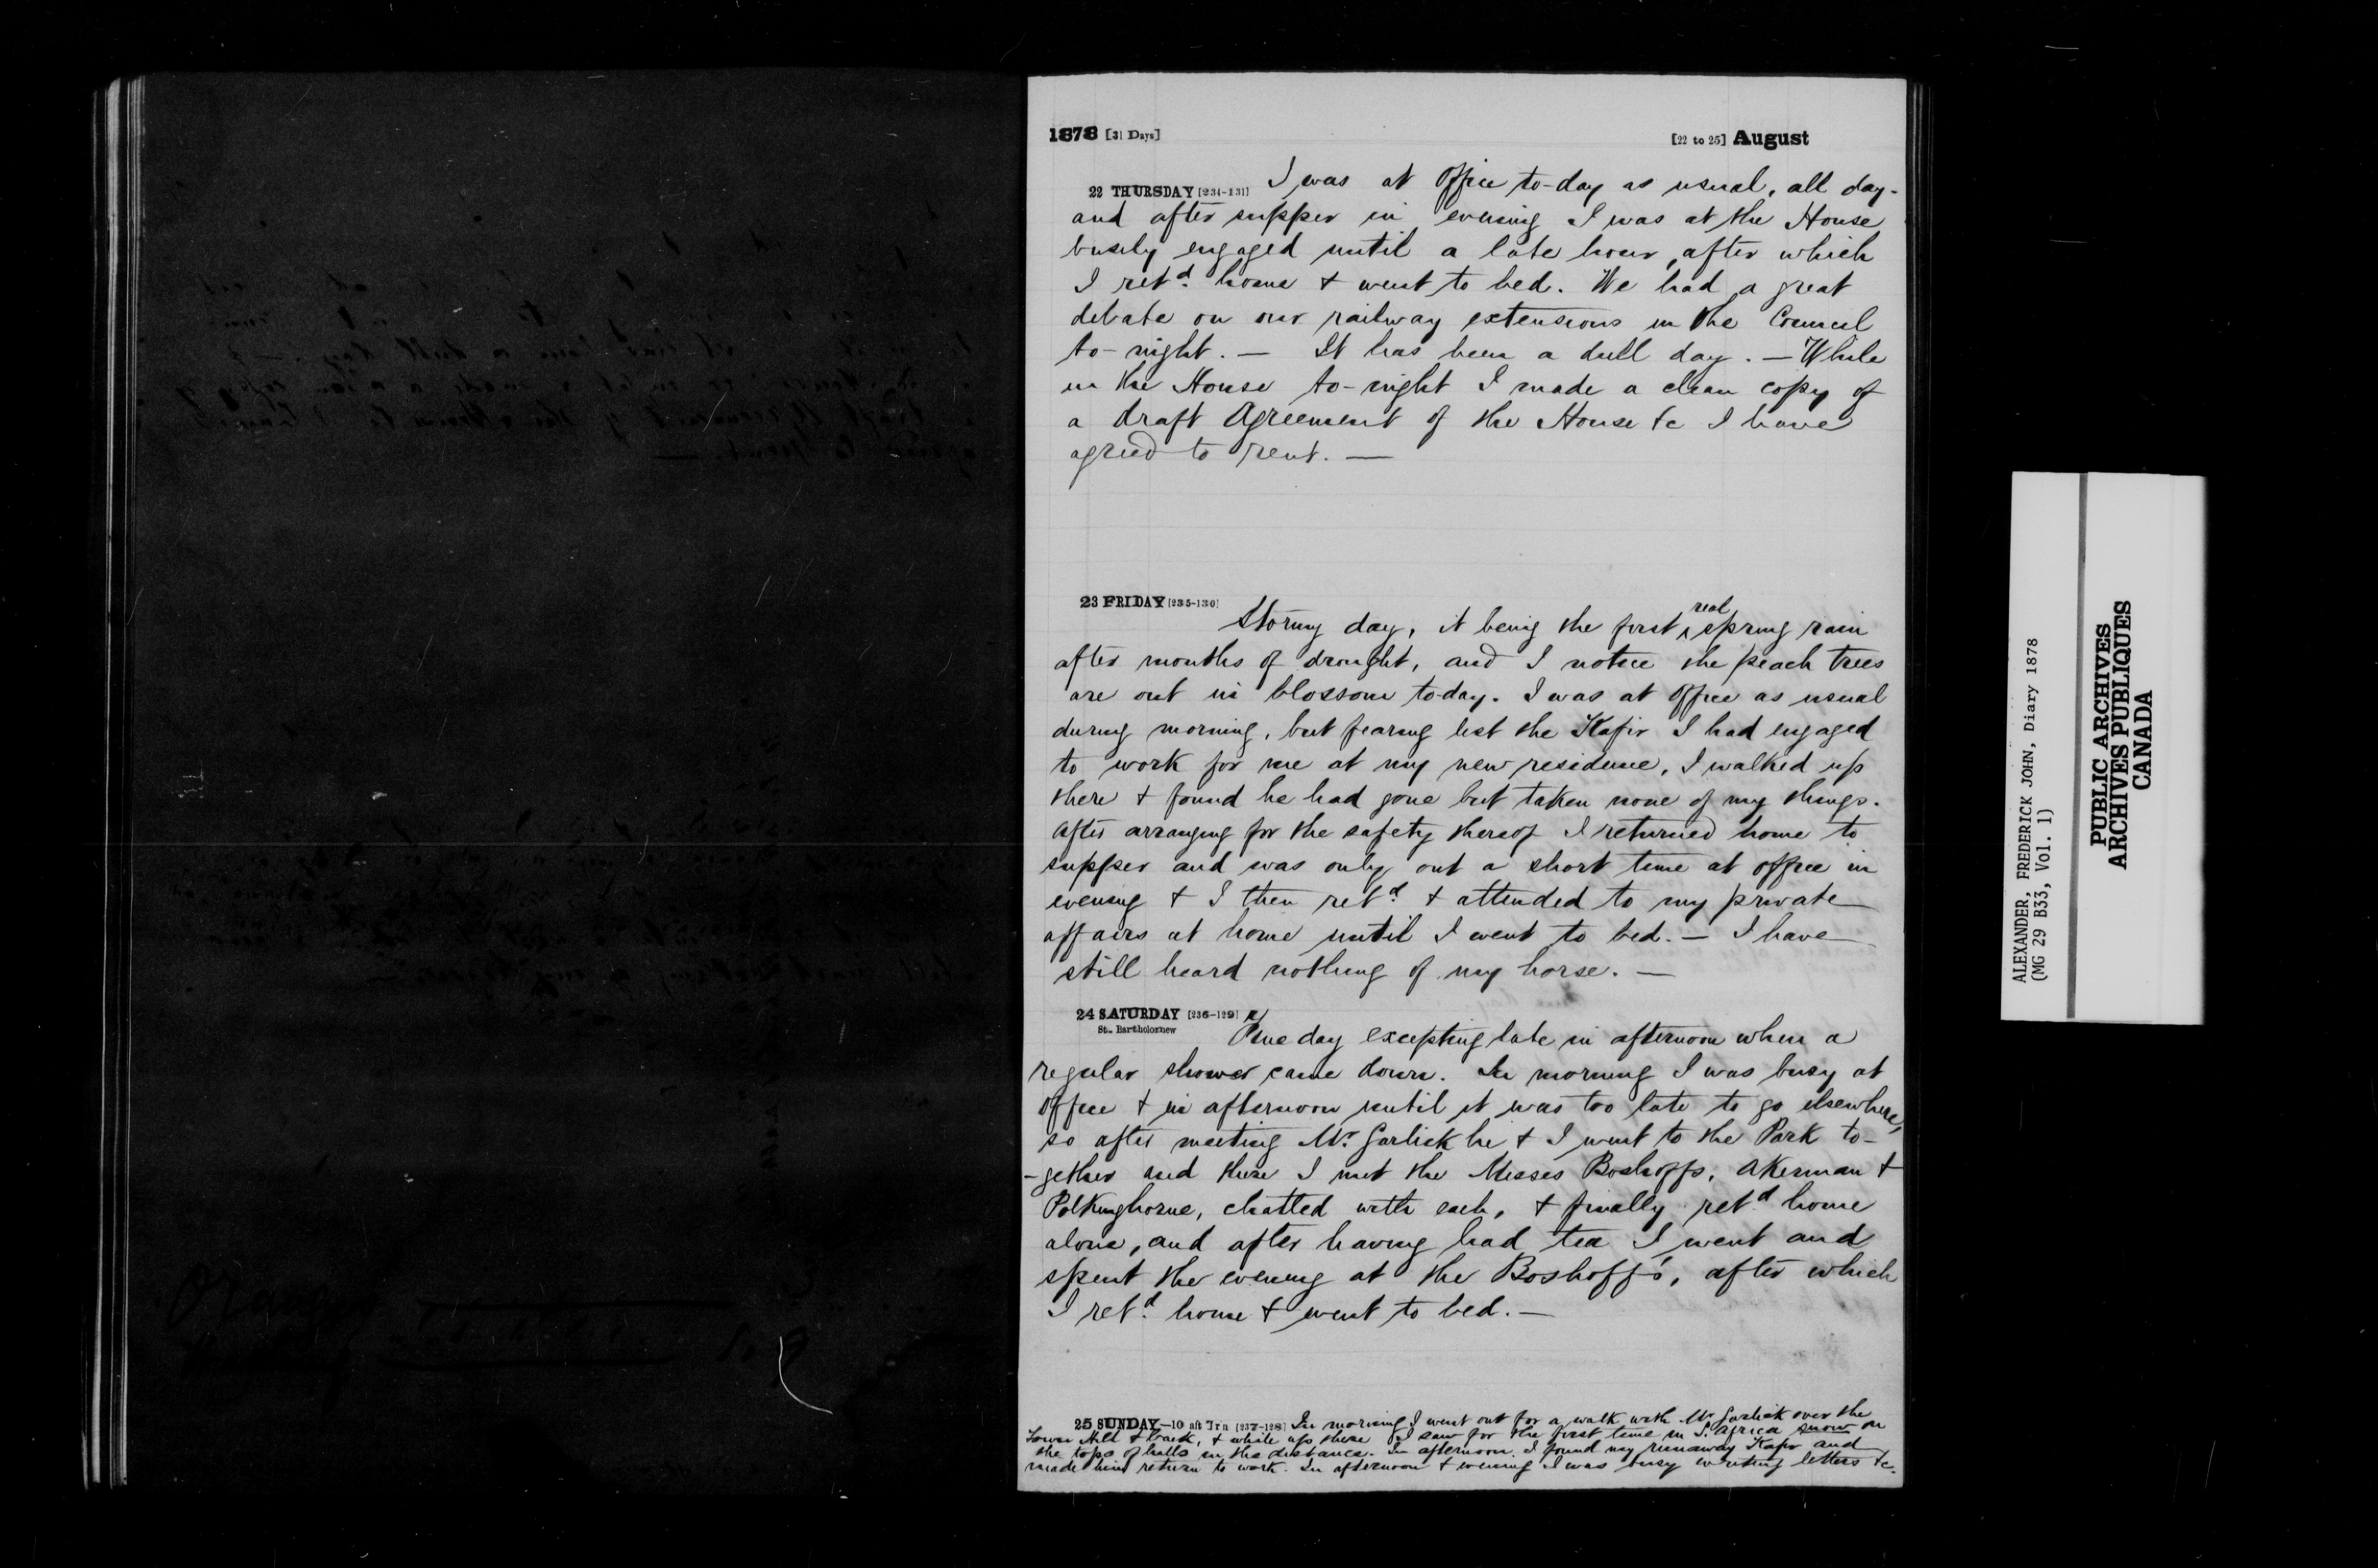 1878 [31 Days] [22 to 25] August
22 THURSDAY [234-131] I was at office to-day as usual, all day-
and after supper in evening I was at the House
busily engaged until a late hour, after which
I retd. home & went to bed. We had a great
debate on our railway extensions in the Council
to-night. — It has been a dull day. — While
in the House to-night I made a clean copy of
a draft Agreement of the House &c I have
agreed to rent. —
23 FRIDAY [235-130]
Stormy day, it being the first ^real spring rain
after months of drought, and I notice the peach trees
are out in blossom to-day. I was at office as usual
during morning, but fearing lest the Kafir I had engaged
to work for me at my new residence, I walked up
there & found he had gone but taken none of my things.
After arranging for the safety thereof I returned home to
supper and was only out a short time at office in
evening & I then retd. & attended to my private
affairs at home until I went to bed. — I have
still heard nothing of my horse. —
24 SATURDAY [236-129]
St. Bartholomew
Fine day excepting late in afternoon when a
regular shower came down. In morning I was busy at
office & in afternoon until it was too late to go elsewhere,
so after meeting Mr. Garlick he & I went to the Park to-
-gether and there I met the Misses Boshoffs, Akerman &
Polkinghorne, chatted with each, & finally retd. home
alone, and after having had tea I went and
spent the evening at the Boshoff's, after which
I retd. home & went to bed. —
25 SUNDAY—10 aft Trn [237-128] In morning I went out for a walk with Mr Garlick over the
Town Hill & back, & while up there I saw for the first time in S. Africa snow on
the tops of hills in the distance. In afternoon I found my runaway Kafir and
made him return to work. In afternoon & evening I was busy writing letters &c.
ALEXANDER, FREDERICK JOHN, Diary 1878
(MG 29 B33, Vol. 1)
PUBLIC ARCHIVES
ARCHIVES PUBLIQUES
CANADA